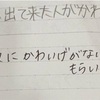 出て来た人がかわ
にかわいげがな
もらい